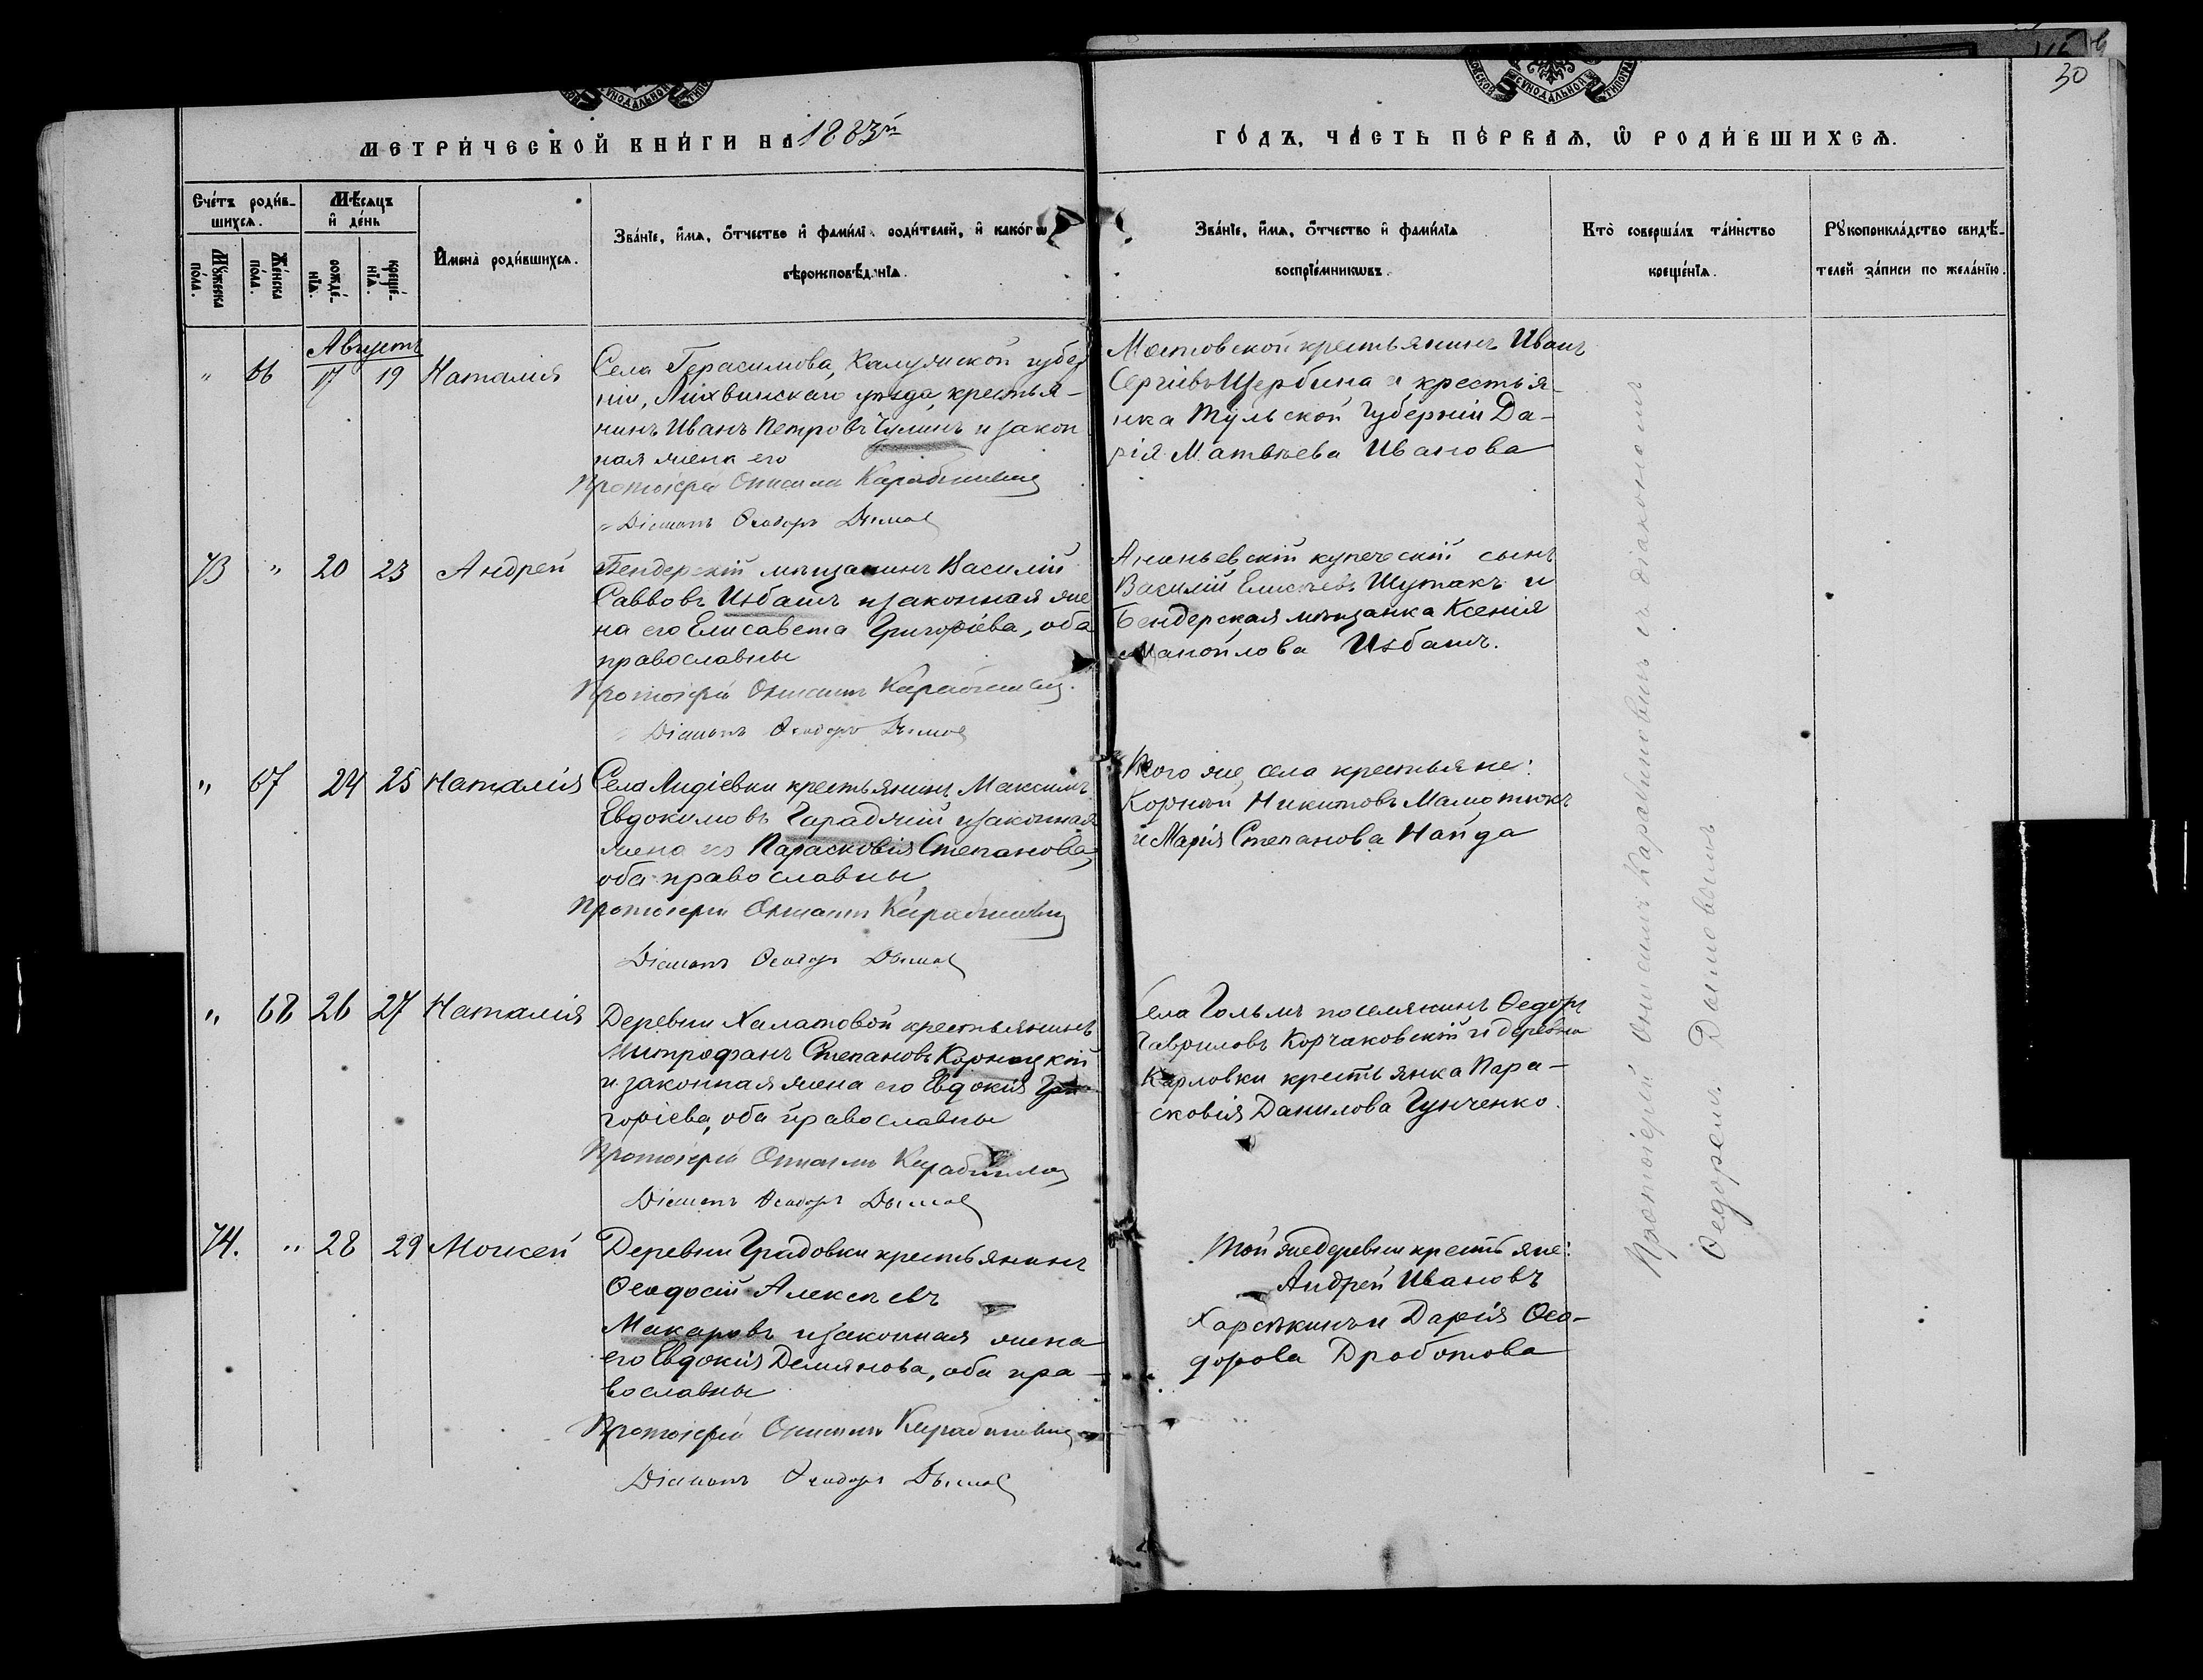 30
МЕТРИ́ЧЕСКОЙ КНИ́ГИ НА 1883й
ГО́ДЪ, ЧА́СТЬ ПЕ́РВАЯ, Ѽ РОДИ́ВШИХСЯ.
Сче́тъ роди́в-
шихся.
Мѣ́сяцъ
и҆ де́нь
Мꙋ́жеска
по́ла.
Же́нска
по́ла.
рожде́-
нїѧ.
креще́-
нїѧ.
И҆мена̀ роди́вшихся.
Зва́нїе, и҆́мѧ, ѻ҆́тчество и҆ фами́лї роди́телей, и҆ како́гѡ
вѣроисповѣ́данїѧ.
Зва́нїе, и҆́мѧ, ѻ҆́тчество и҆ фами́лїѧ
воспрїе́мникѡвъ.
Кто̀ соверша́лъ та́инство
креще́нїѧ.
Рꙋкоприкла́дство свидѣ́-
телей за́писи по жела́нїю.
Августъ
" 66 17 19 Наталія
Села Герасимова, Калужской губер
ніи, Лихвинскаго уѣзда, крестья-
нинъ Иванъ Петровъ Чулинъ и закон
ная жена его
Протоіерей Онисимъ Карабиневичъ
Діаконъ Ѳеодоръ Дымов
Мостовской крестьянинъ Иванъ
Сергіевъ Щербина и крестья-
нка Тульской Губерніи Да-
рія Матвѣева Иванова
73 " 20 23 Андрей
Бендерскій мѣщанинъ Василій
Саввовъ Избашъ и законная же
на его Елисавета Григоріева, оба
православны
Протоіерей Онисимъ Карабиневичъ
Діаконъ Ѳеодоръ Дымов
Ананьевскій купеческій сынъ
Василій Елисѣевъ Шутакъ и
Бендерская мѣщанка Ксенія
Манойлова Избашъ.
" 67 24 25 Наталія
Села Лидіевки крестьянинъ Максимъ
Евдокимовъ Гараджій и законная
жена его Парасковія Степанова,
оба православны
Протоіерей Онисимъ Карабиневичъ
Діаконъ Ѳеодоръ Дымов
Того же села крестьяне:
Корній Никитовъ Мамотюкъ
и Марія Степанова Найда
" 68 26 27 Наталія
Деревни Халатовой крестьянинъ
Митрофанъ Степановъ Корницкій
и законная жена его Евдокія Гри-
горіева, оба православны
Протоіерей Онисимъ Карабиневичъ
Діаконъ Ѳеодоръ Дымов
Села Гольмъ поселянинъ Ѳедоръ
Гавриловъ Корчаковскій и деревни
Карловки крестьянка Пара-
сковія Данилова Гунченко.
74. " 28 29 Моисей
Деревни Градовки крестьянинъ
Ѳеодосій Алексѣевъ
Макаровъ и законная жена
его Евдокія Демянова, оба пра-
вославны
Протоіерей Онисимъ Карабиневичъ
Діаконъ Ѳеодоръ Дымов
Той же деревни крестьяне:
Андрей Ивановъ
Харсѣкинъ и Дарія Ѳео-
дорова Дроботова
Протоіерей Онисимъ Карабиневичъ съ діакономъ
Ѳедоромъ Дымовымъ